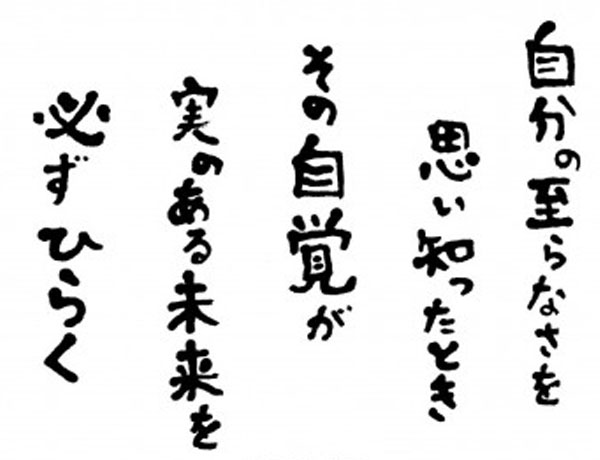 自分の至らなさを
思い知ったとき
その自覚が
実のある未来を
必ずひらく